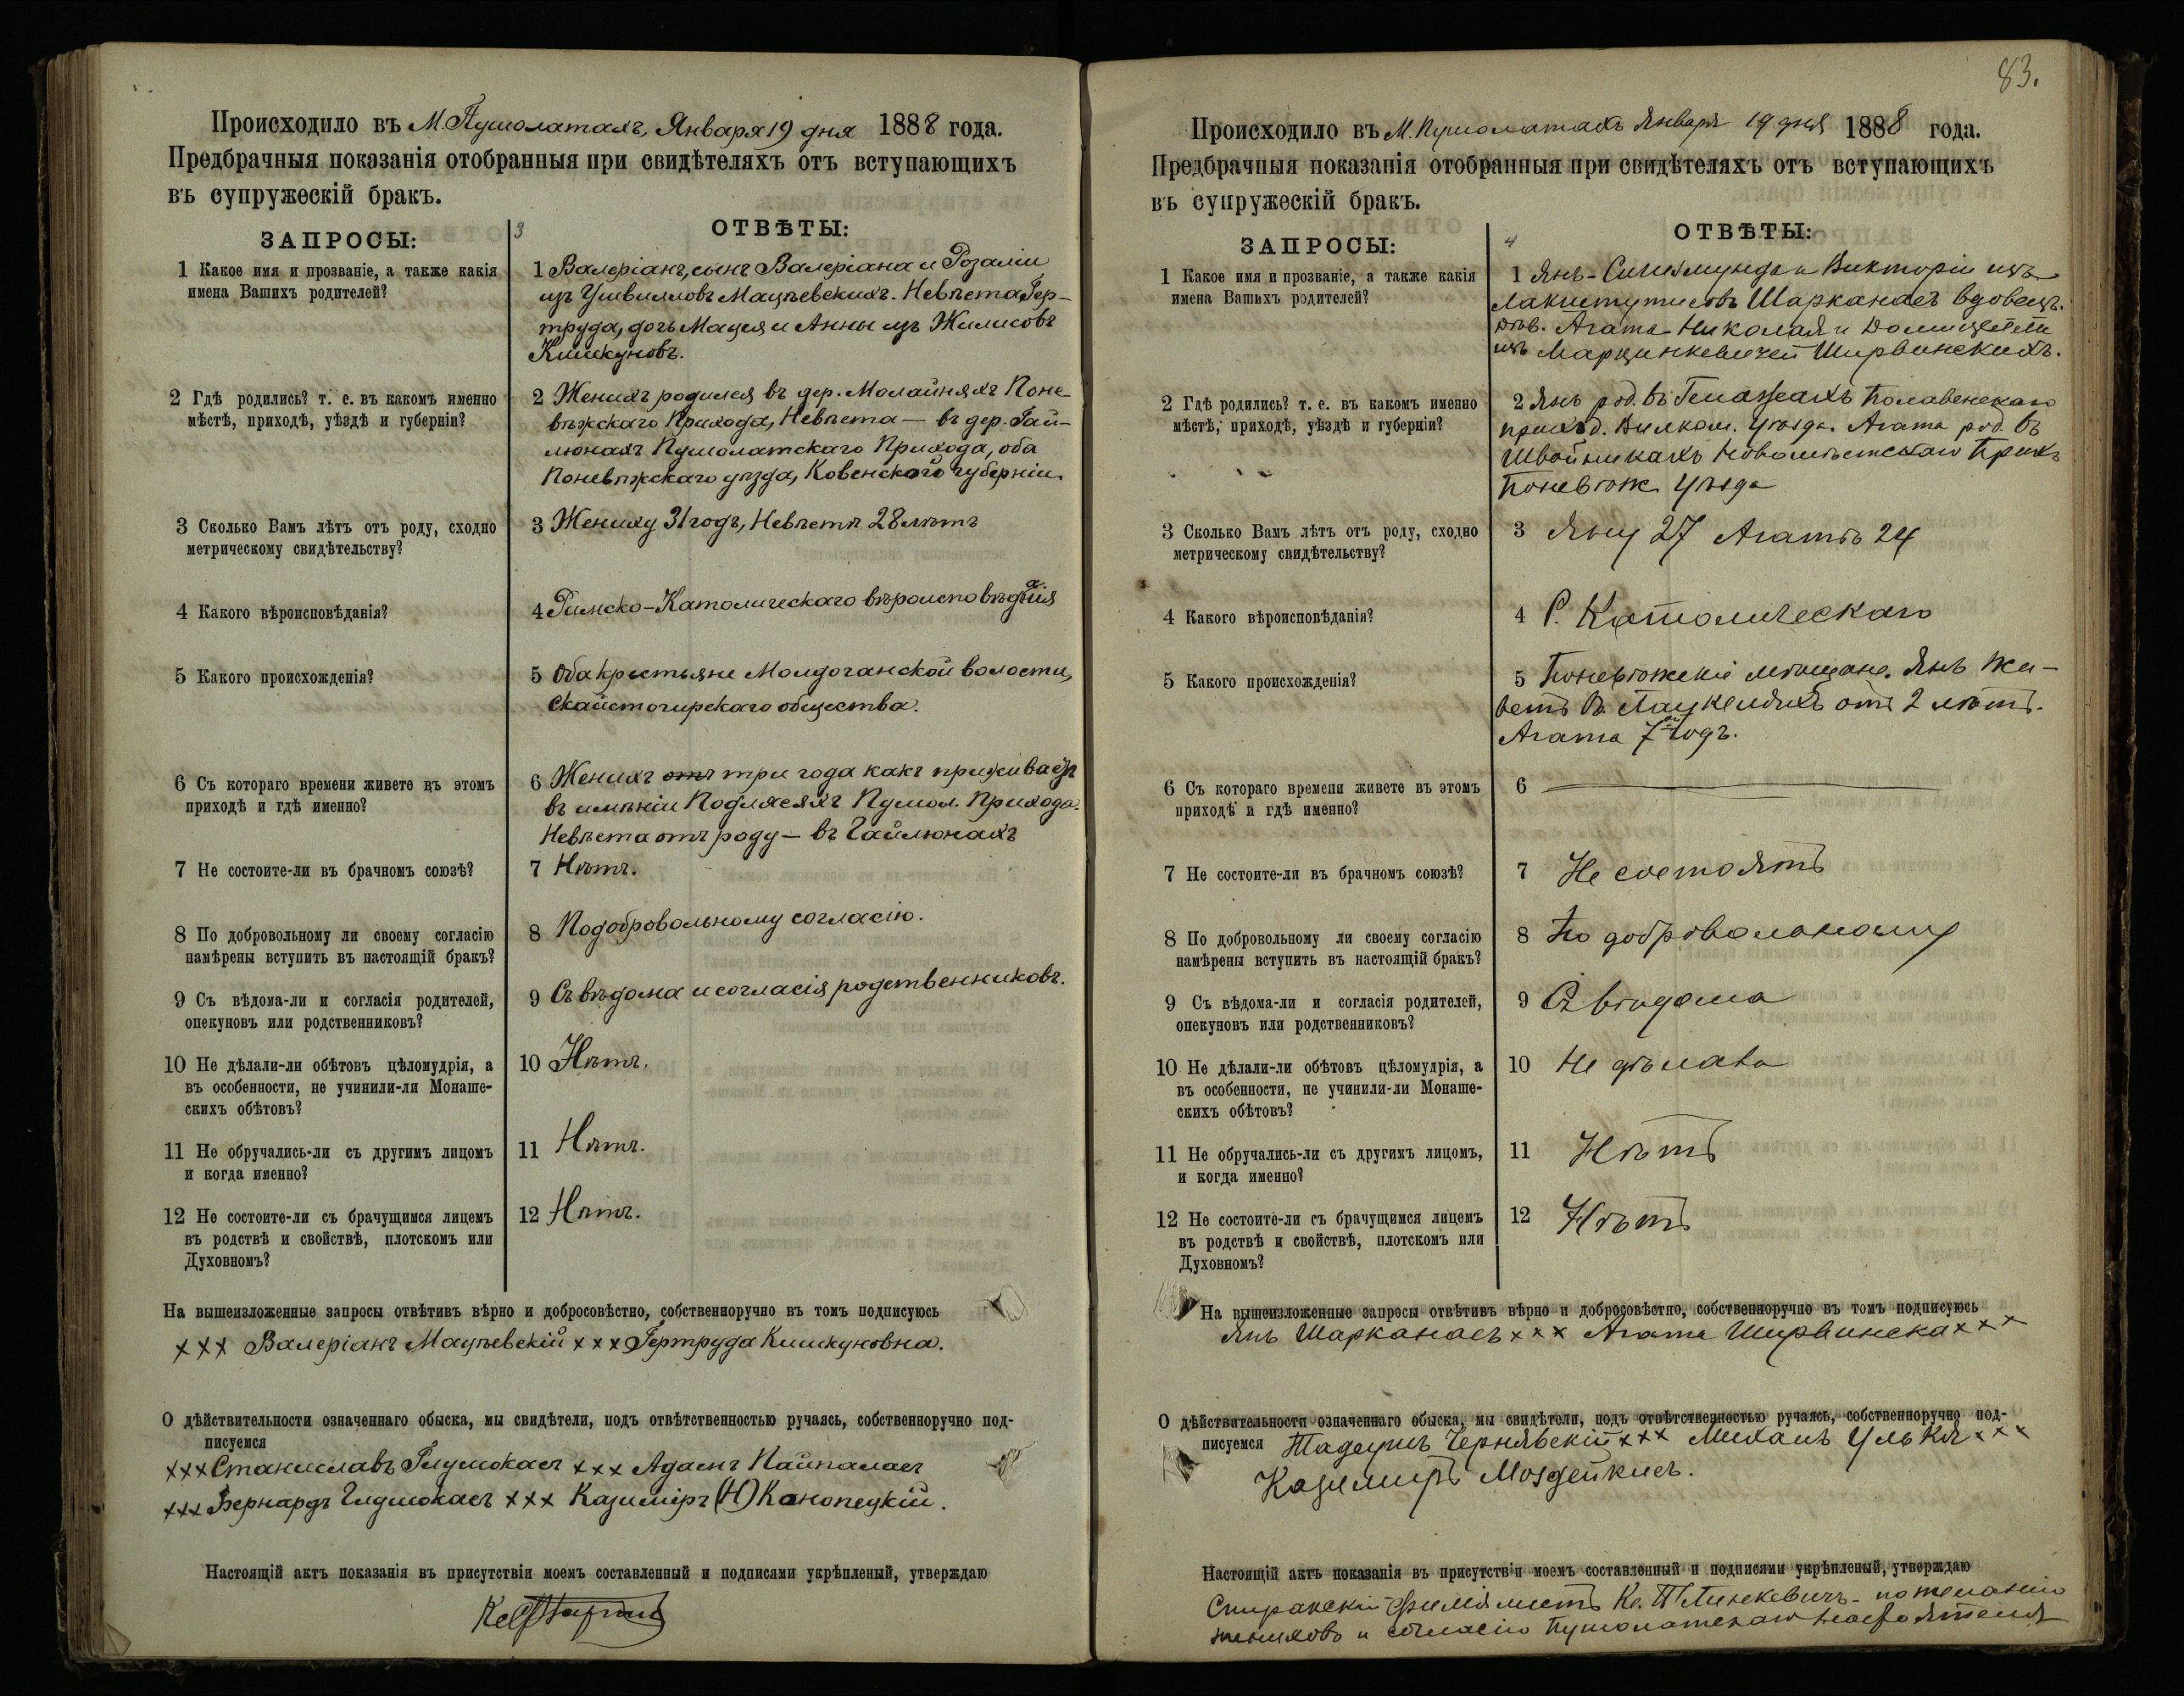 Происходило въ М. Пушолатахъ, Января 19 дня 1888 года.
Предбрачныя показанія отобранныя при свидѣтеляхъ отъ вступающихъ
въ супружескій бракъ.
3
ЗАПРОСЫ:
ОТВѢТЫ:
1 Какое имя и прозваніе, а также какія
имена Вашихъ родителей?
1 Валеріанъ, сынъ Валеріана и Розаліи
изъ Ушвилловъ Мацѣевскихъ. Невѣста Гер-
труда, дочь Мацея и Анны изъ Жилисовъ
Кишкуновъ.
2 Гдѣ родились? т. е. въ какомъ именно
мѣстѣ, приходѣ, уѣздѣ и губерніи?
2 Женихъ родился въ дер. Молайняхъ Поне-
вѣжскаго Прихода, Невѣста — въ дер. Гай-
люнахъ Пушолатскаго Прихода, оба
Поневѣжскаго уѣзда, Ковенского губерніи.
3 Сколько Вамъ лѣтъ отъ роду, сходно
метрическому свидѣтельству?
3 Жениху 31 годъ, Невѣстѣ 28 лѣтъ
4 Какого вѣроисповѣданія?
4 Римско-Католическаго вѣроисповѣданія
5 Какого происхожденія?
5 Оба крестьяне Молдочанской волости,
Скайстогирскаго общества.
6 Съ котораго времени живете въ этомъ
приходѣ и гдѣ именно?
6 Женихъ отъ три года какъ проживаетъ
въ имѣніи Подлясяхъ Пушол. Прихода.
Невѣста отъ роду — въ Гайлюнахъ
7 Не состоите-ли въ брачномъ союзѣ?
7 Нѣтъ.
8 По добровольному ли своему согласію
намѣрены вступить въ настоящій бракъ?
8 По добровольному согласію.
9 Съ вѣдома-ли и согласія родителей,
опекуновъ или родственниковъ?
9 Съ вѣдома и согласія родственниковъ.
10 Не дѣлали-ли обѣтовъ цѣломудрія, а
въ особенности, не учинили-ли Монаше-
скихъ обѣтовъ?
10 Нѣтъ.
11 Не обручались-ли съ другимъ лицомъ
и когда именно?
11 Нѣтъ.
12 Не состоите-ли съ брачущимся лицемъ
въ родствѣ и свойствѣ, плотскомъ или
Духовномъ?
12 Нѣтъ.
На вышеизложенные запросы отвѣтивъ вѣрно и добросовѣстно, собственноручно въ томъ подписуюсь
××× Валеріанъ Мацѣевскій ××× Гертруда Кишкуновна.
О дѣйствительности означеннаго обыска, мы свидѣтели, подъ отвѣтственностью ручаясь, собственноручно под-
писуемся
××× Станиславъ Глушокасъ ××× Адамъ Пайпаласъ
××× Бернардъ ××× Казиміръ (Н) Канопецкій.
Настоящій актъ показанія въ присутствіи моемъ составленный и подписями укрѣпленый, утверждаю
83.
Происходило въ М. Пушолатахъ Января 19 дня 1888 года.
Предбрачныя показанія отобранныя при свидѣтеляхъ отъ вступающихъ
въ супружескій бракъ.
4
ЗАПРОСЫ:
ОТВѢТЫ:
1 Какое имя и прозваніе, а также какія
имена Вашихъ родителей?
1 Янъ - Сигизмунда и Викторіи изъ
Шарканасъ вдовецъ.
Агата - Николая и Доминцели
изъ Марцинкевичей Ширвинскихъ.
2 Гдѣ родились? т. е. въ какомъ именно
мѣстѣ, приходѣ, уѣздѣ и губерніи?
2 Янъ род. въ
приход. Вилком. уѣзда. Агата род. въ
Швойникахъ Новомѣстскаго Прих.
Поневѣж. уѣзда
3 Сколько Вамъ лѣтъ отъ роду, сходно
метрическому свидѣтельству?
3 Яну 27 Агатѣ 24
4 Какого вѣроисповѣданія?
4 Р. Католическаго
5 Какого происхожденія?
5 Поневѣжскіе мѣщане. Янъ жи-
ветъ въ отъ 2 лѣтъ.
Агата 7 годъ.
6 Съ котораго времени живете въ этомъ
приходѣ и гдѣ именно?
6 —
7 Не состоите-ли въ брачномъ союзѣ?
7 Не состоятъ
8 По добровольному ли своему согласію
намѣрены вступить въ настоящій бракъ?
8 По добровольному
9 Съ вѣдома-ли и согласія родителей,
опекуновъ или родственниковъ?
9 Съ вѣдома
10 Не дѣлали-ли обѣтовъ цѣломудрія, а
въ особенности, не учинили-ли Монаше-
скихъ обѣтовъ?
10 Не дѣлали
11 Не обручались-ли съ другимъ лицомъ,
и когда именно?
11 Нѣтъ
12 Не состоите-ли съ брачущимся лицемъ
въ родствѣ и свойствѣ, плотскомъ или
Духовномъ?
12 Нѣтъ
На вышеизложенные запросы отвѣтивъ вѣрно и добросовѣстно, собственноручно въ томъ подписуюсь
Янъ Шарканасъ ××× Агата Ширвинска ×××
О дѣйствительности означеннаго обыска, мы свидѣтели, подъ отвѣтственностью ручаясь, собственноручно под-
писуемся Тадеушъ Чернявскій ××× Михаилъ Улька ×××
Казимиръ Моздейкисъ.
Настоящій актъ показанія въ присутствіи моемъ составленный и подписями укрѣпленый, утверждаю
Спиракскій Филялистъ Кс. по желанію
жениховъ и согласію Пушолатскаго Настоятеля